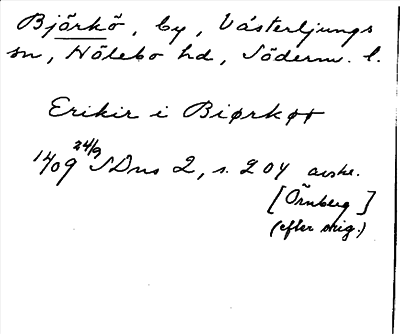 Björkö, by, Västerljungs
sn, Hölebo hd, Söderm. l.
Erikir i Biørkøø
1409 24/9 SDns 2, s. 204 avskr.
[Örnberg]
(efter orig.)